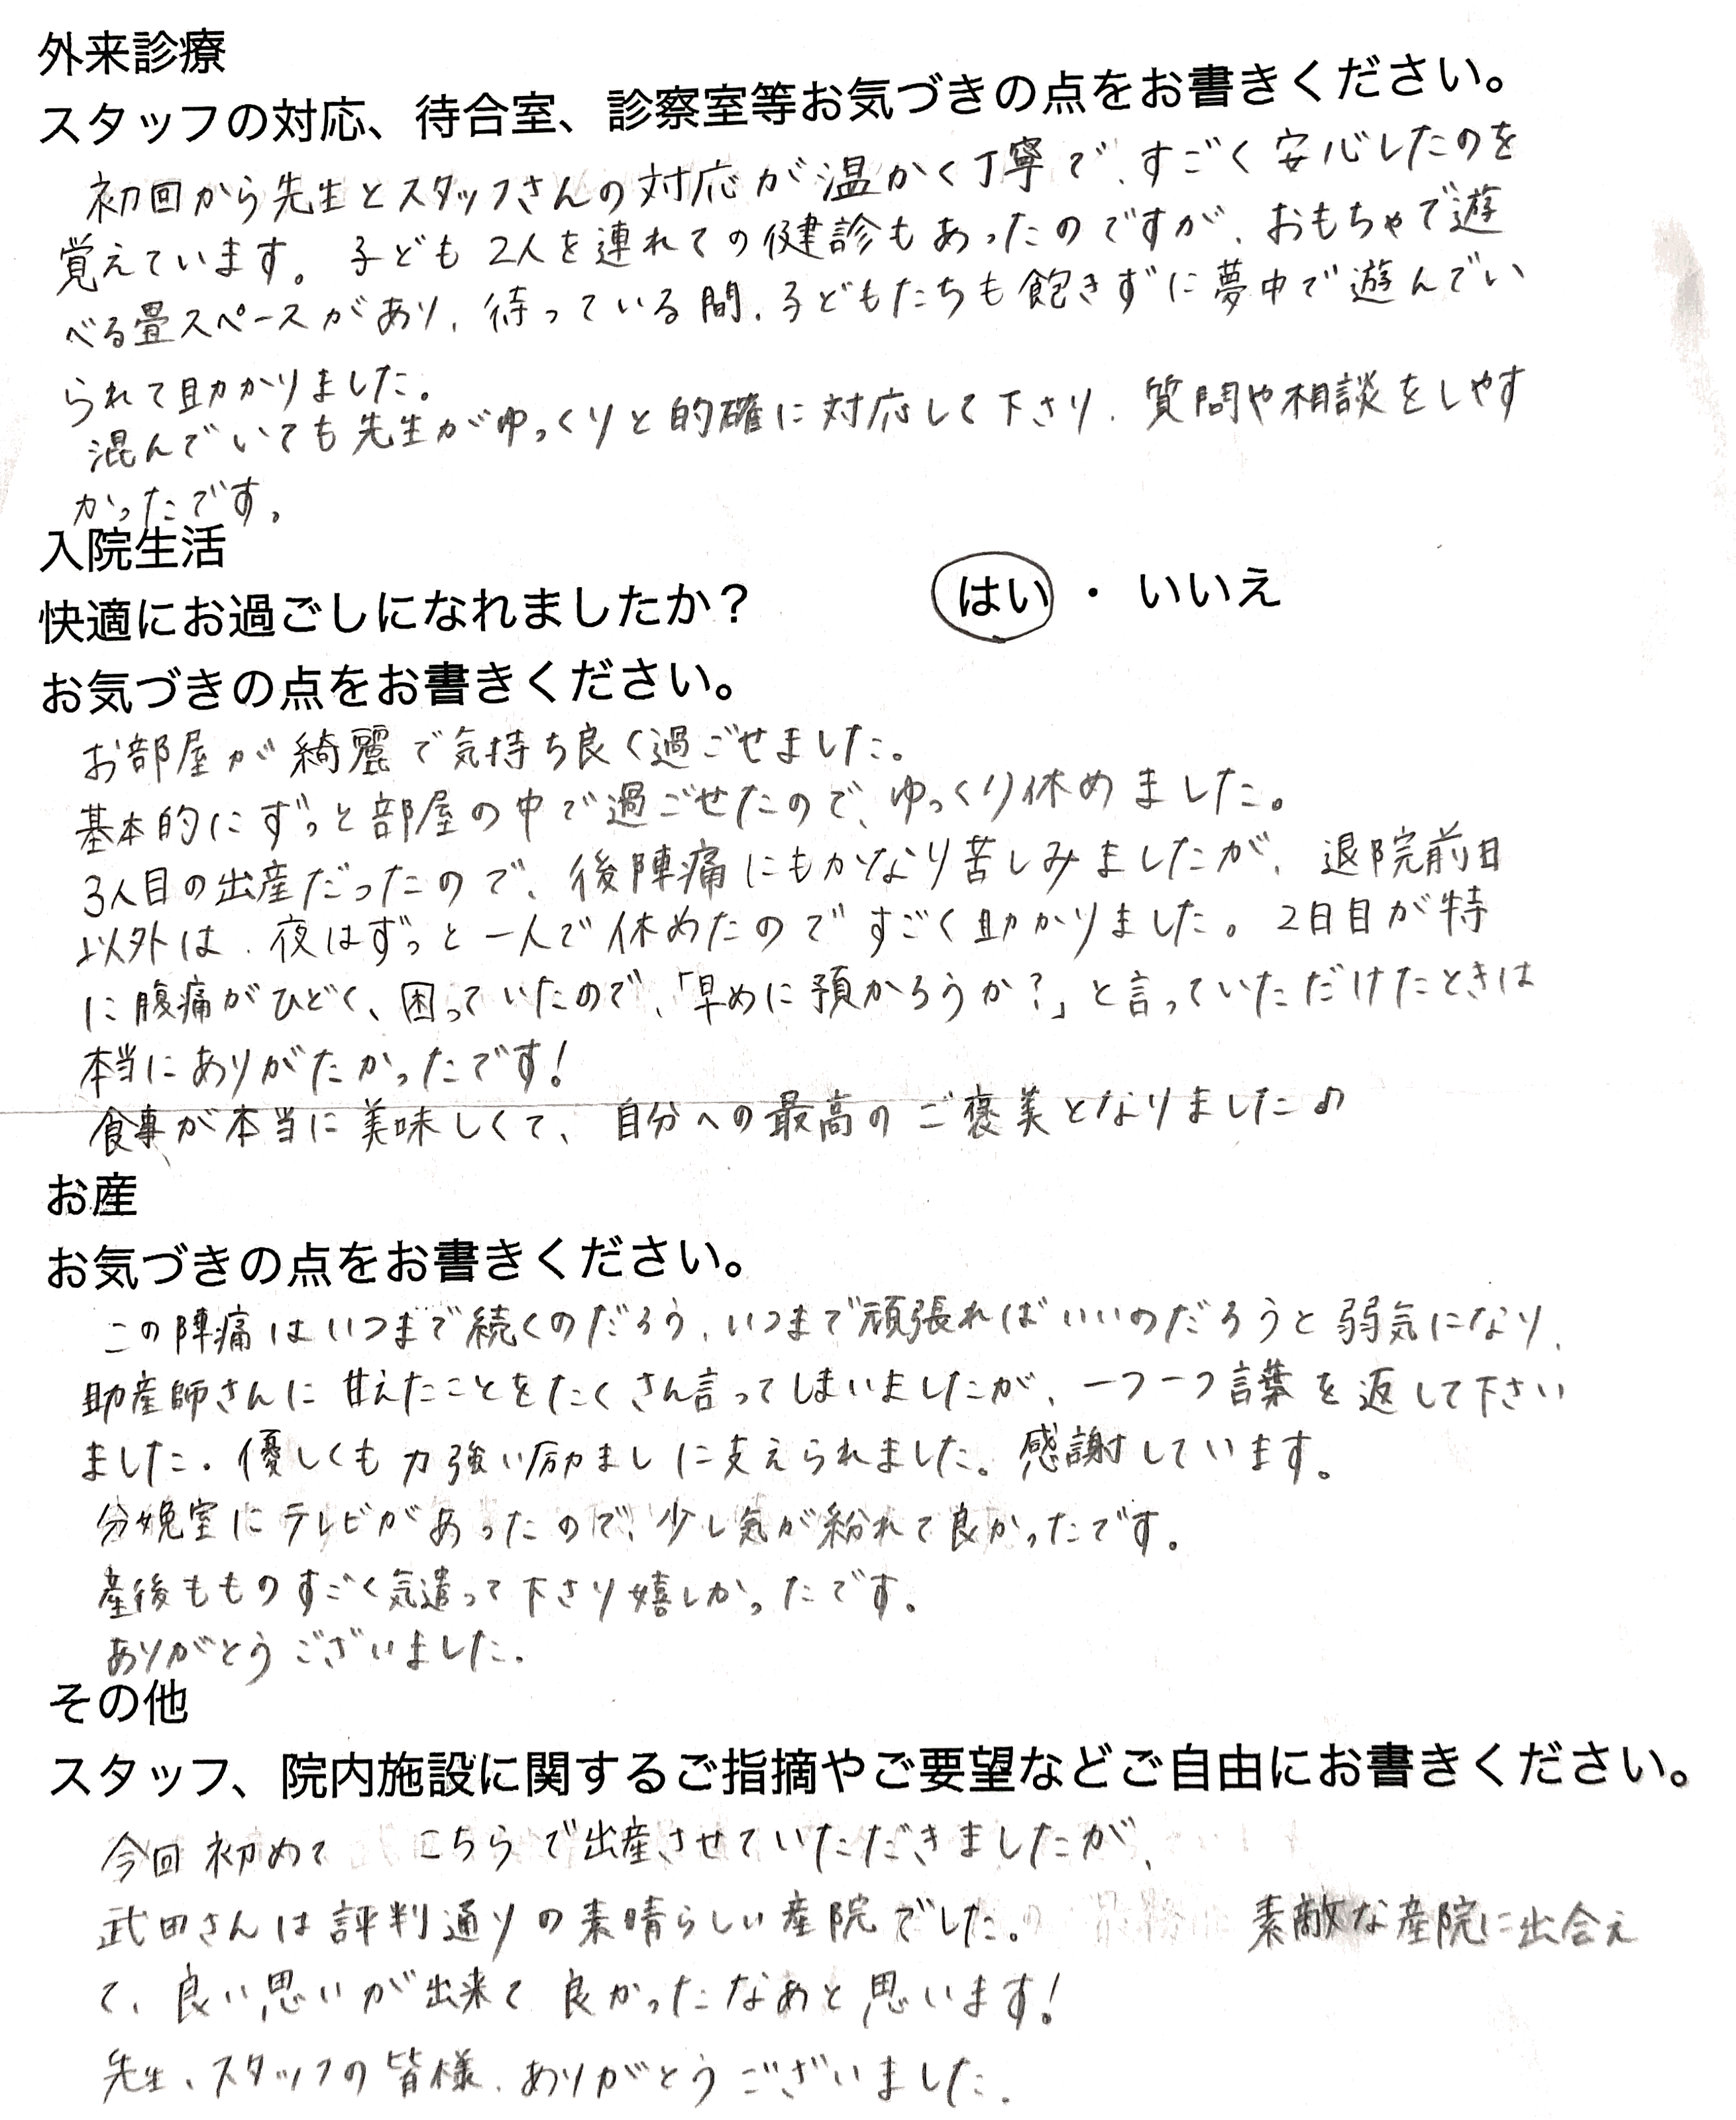 外来診療
スタッフの対応、待合室、診察室等お気づきの点をお書きください。
初回から先生とスタッフさんの対応が温かく丁寧で、すごく安心したのを
覚えています。子ども2人を連れての健診もあったのですが、おもちゃで遊
べる畳スペースがあり、待っている間、子どもたちも飽きずに夢中で遊んでい
られて助かりました。
混んでいても先生がゆっくりと的確に対応して下さり、質問や相談をしやす
かったです。
入院生活
快適にお過ごしになれましたか？ はい ・ いいえ
お気づきの点をお書きください。
お部屋が綺麗で気持ち良く過ごせました。
基本的にずっと部屋の中で過ごせたので、ゆっくり休めました。
3人目の出産だったので、後陣痛にもかなり苦しみましたが、退院前日
以外は、夜はずっと一人で休めたのですごく助かりました。2日目が特
に腹痛がひどく、困っていたので、「早めに預かろうか？」と言っていただけたときは
本当にありがたかったです！
食事が本当に美味しくて、自分への最高のご褒美となりました♪
お産
お気づきの点をお書きください。
この陣痛はいつまで続くのだろう、いつまで頑張ればいいのだろうと弱気になり、
助産師さんに甘えたことをたくさん言ってしまいましたが、一つ一つ言葉を返して下さい
ました。優しくも力強い励ましに支えられました。感謝しています。
分娩室にテレビがあったので、少し気が紛れて良かったです。
産後もものすごく気遣って下さり嬉しかったです。
ありがとうございました。
その他
スタッフ、院内施設に関するご指摘やご要望などご自由にお書きください。
今回初めて こちらで出産させていただきましたが、
武田さんは評判通りの素晴らしい産院でした。 素敵な産院に出会え
て、良い思いが出来て良かったなあと思います！
先生、スタッフの皆様、ありがとうございました。